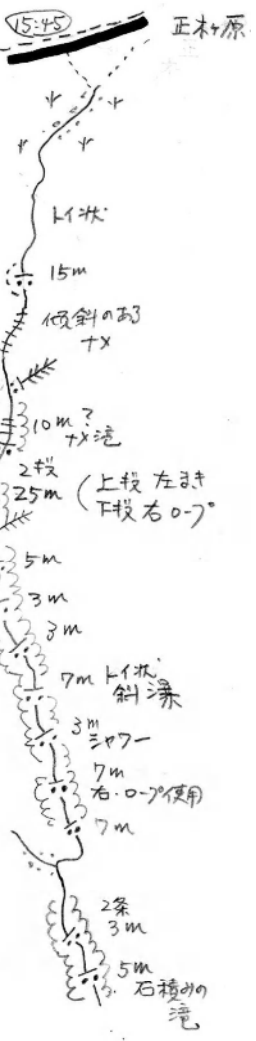 15:45
正木ヶ原
トイ状
15m
傾斜のある
ナメ
10m?
ナメ滝
2段
25m
(上段 左まき
下段 右ロープ
5m
3m
3m
7m トイ状
斜瀑
3m
シャワー
7m
右・ロープ使用
7m
2条
3m
5m
石積みの
滝